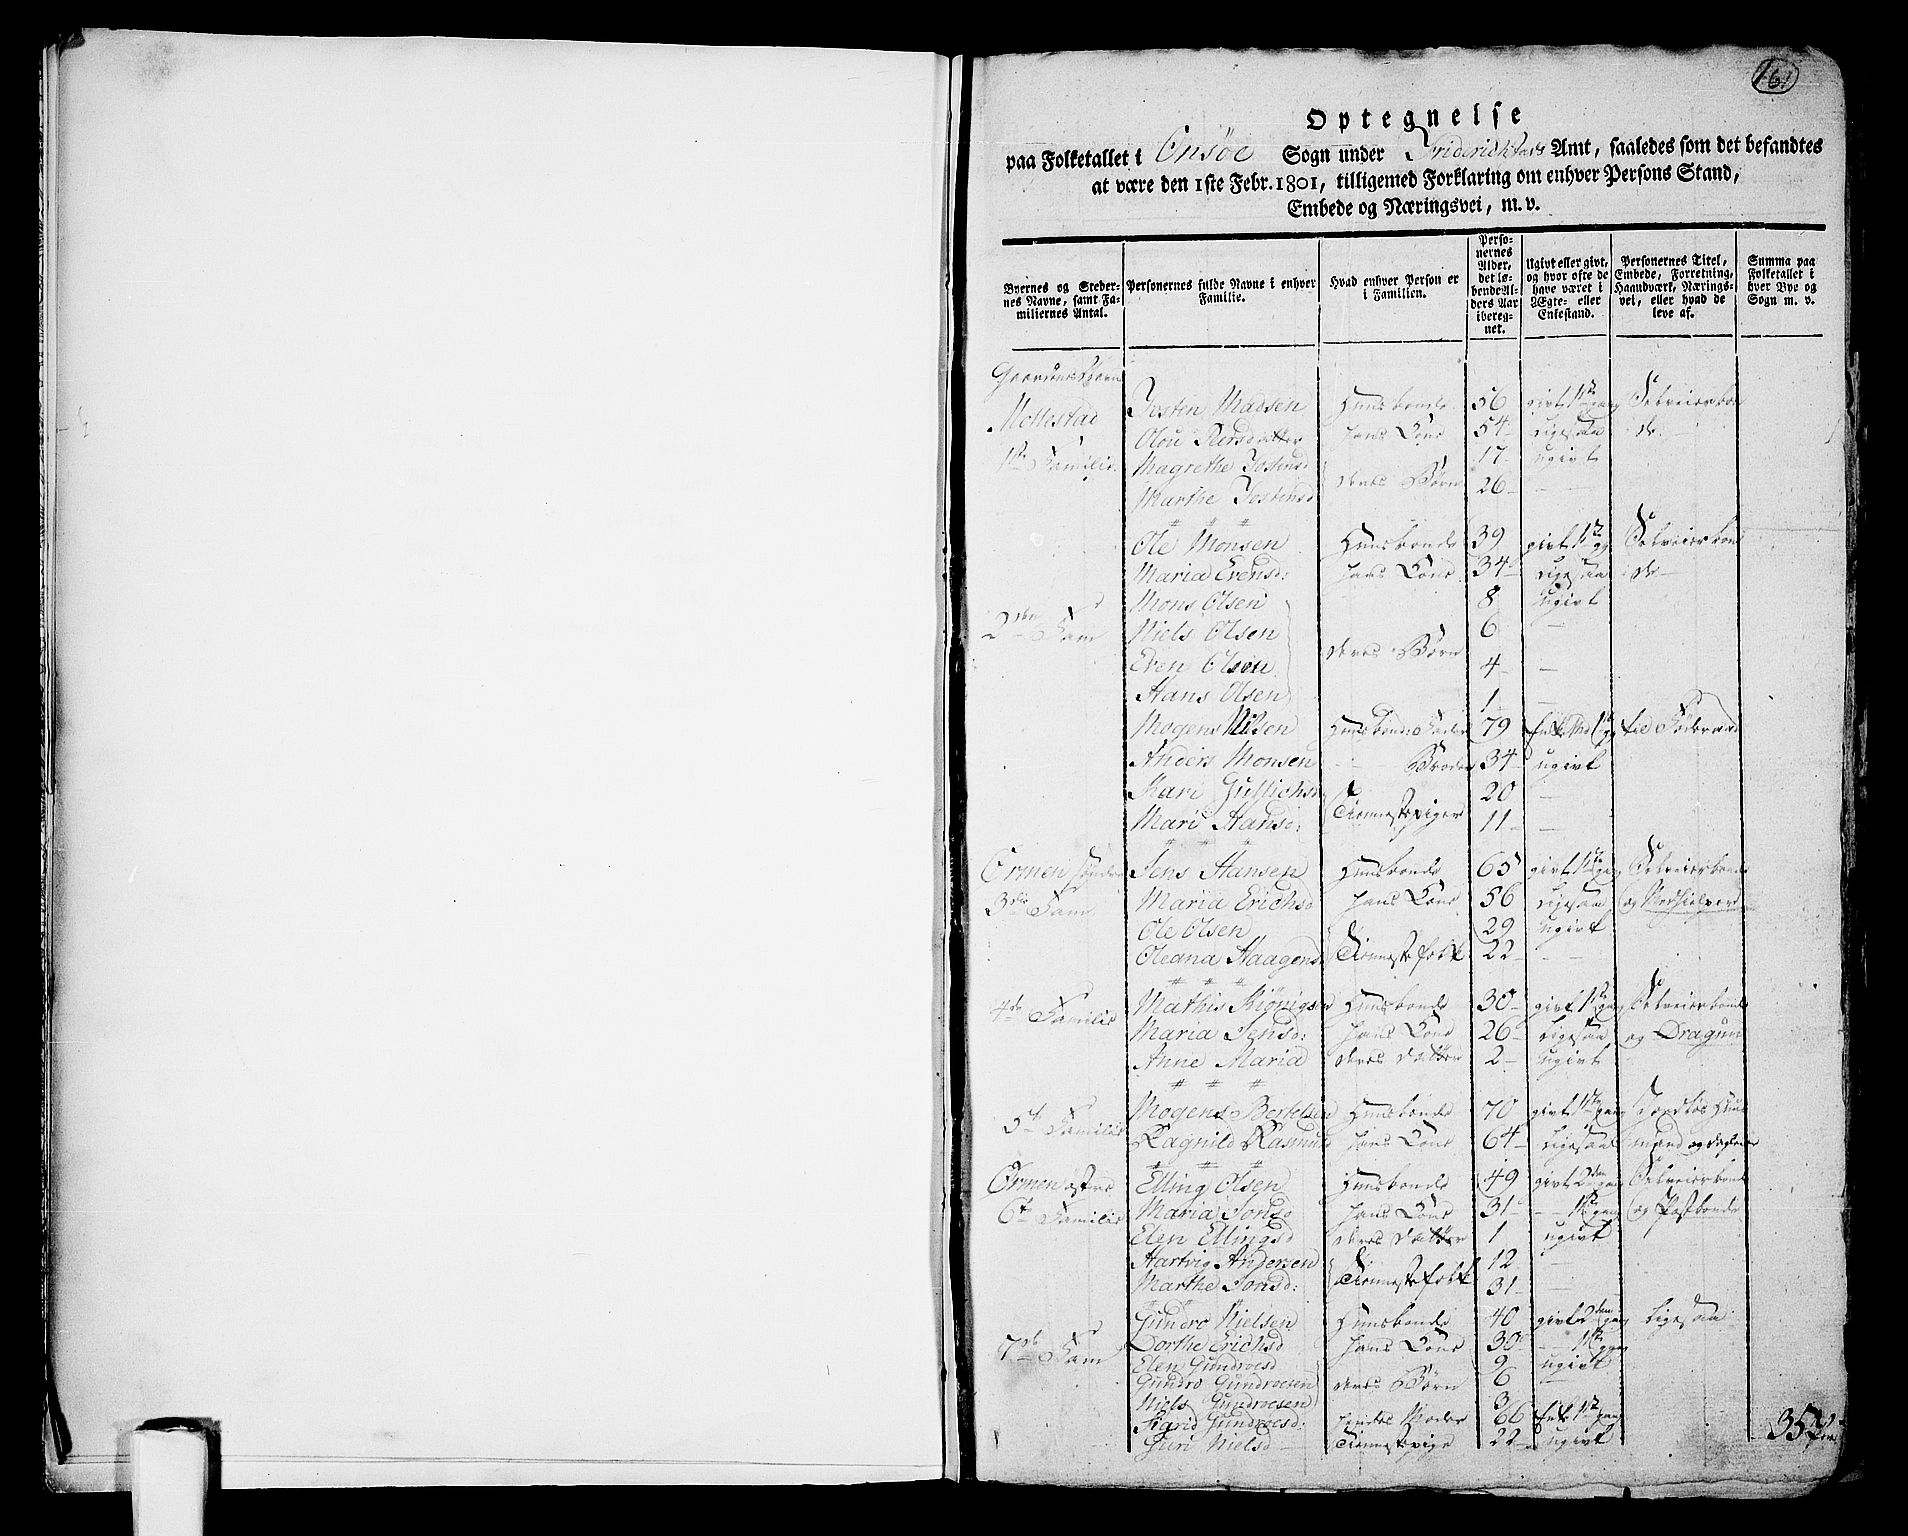 161
Optegnelse
paa Folketallet i Onsöe Sogn under Fridrichstads Amt, saaledes som det befandtes
at være den 1ste Febr. 1801, tilligemed Forklaring om enhver Persons Stand,
Embede og Næringsvei, m. v.
Byernes og Stedernes Navne, samt Familiernes Antal.
Personernes fulde Navne i enhver Familie.
Hvad enhver Person er i Familien.
Personernes Alder, det løbende Alders Aar iberegnet.
Ugivt eller givt, og hvor ofte de have været i Ægte- eller Enkestand.
Personernes Titel, Embede, Forretning, Haandværk, Næringsvei, eller hvad de leve af.
Summa paa Folketallet i hver Bye og Sogn m. v.
Mollestad Josten Madsen Huusbonde 56 givt 1ste gang Selveierbon
Olou Persdatter hans Kone 54 ligesaa de
1ste Familie Magrethe Jostensd 17 ugivt
Marthe Jostensd deres Børn 26 —
Ole Monsen Huusbonde 39 givt 1ste gg Selveierbon
Maria Evensd: hans Kone 34 ligesaa de
2den Fam Mons Olsen 8 ugivt
Niels Olsen 6 —
Even Olsen deres Børn 4 —
Hans Olsen 1 —
Mogens Nilsen Huusbond: Fader 79
Anders Monsen — Broder 34 ugivt
Kari Gullichsd 20 —
Mari Hansd: Tienestepiger 11 —
Ormen søndre Jens Hansen Huusbonde 65 givt 1ste gang Selveierbonde
3die Fam Maria Erichsd hans Kone 56 ligesaa og
Ole Olsen 29 ugivt
Oleana Haagensd Tienestefolk 22 —
4de Familie Mathis Kiønigsen Huusbonde 30 givt 1ste gang Selveierbonde
Maria Jensd: hans Kone 26 ligesaa og Dragun
Anne Maria deres datter 2 ugivt
5te Familie Mogens Bertelsen Huusbonde 70 givt 1ste gang Jordløs Huus
Ragnild Rasmusd hans Kone 64 ligesaa mand og
Ormen østre Elling Olsen Huusbonde 49 givt 2den gang Selveierbonde
6te Familie Maria Jonsd hans Kone 31 — 1ste gang og Postbonde
Elen Ellingsd deres datter 1 ugivt
Hartvig Andersen 12 —
Marthe Jonsd: Tienestefolk 31 —
Gundro Nielsen Huusbonde 40 givt 2den gang ligesaa
7de Fam Dorthe Erichsd hans Kone 30 — 1ste gang
Elen Gundroesd 9 ugivt
Gundro Gundroesen deres Børn 6 —
Niels Gundroesen 3
Sigrid Gundroesd: hendes Moder 66 Enke 1ste gang
Guri Nielsd — Tienestepige 22 ugivt
35